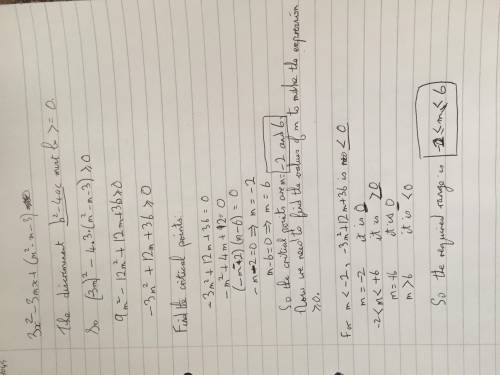 3x² - 3mx + (m² - m - 3)
The discriminant b² - 4ac must be >= 0.
So (3m)² - 4·3·(m² - m - 3) ≥ 0
9m² - 12m² + 12m + 36 ≥ 0
-3m² + 12m + 36 ≥ 0
Find the critical points:
-3m² + 12m + 36 = 0
-m² + 4m + 12 = 0
(-m-2)(m-6) = 0
-m-2 = 0 ⇒ m = -2
m-6 = 0 ⇒ m = 6
So the critical points are m = -2 and 6.
Now we need to find the values of m to make the expression
≥ 0.
For m < -2, -3m² + 12m + 36 is < 0
m = -2 it is 0
-2 < m < +6 it is > 0
m = +6 it is 0
m > 6 it is < 0
So the required range is -2 ≤ m ≤ 6